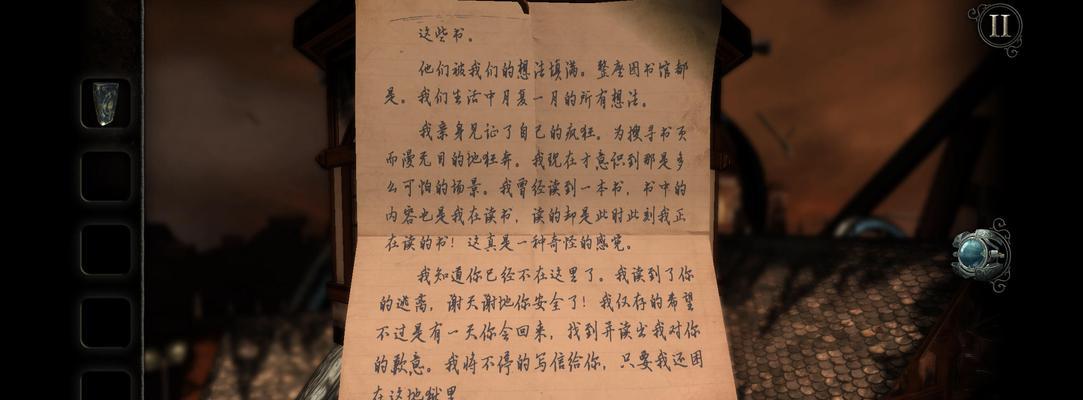 这些书。
他们被我们的想法填满。整座图书馆都
是。我们生活中月复一月的所有想法。
我亲身见证了自己的疯狂。为搜寻书页
而漫无目的地狂奔。我现在才意识到那是多
么可怕的场景。我曾经读到一本书，书中的
内容也是我在读书，读的却是此时此刻我正
在读的书！这真是一种奇怪的感觉。
我知道你已经不在这里了。我读到了你
的逃离，谢天谢地你安全了！我仅存的希望
不过是有一天你会回来，找到并读出我对你
的歉意。我将不停的写信给你，只要我还困
在这地狱里
II